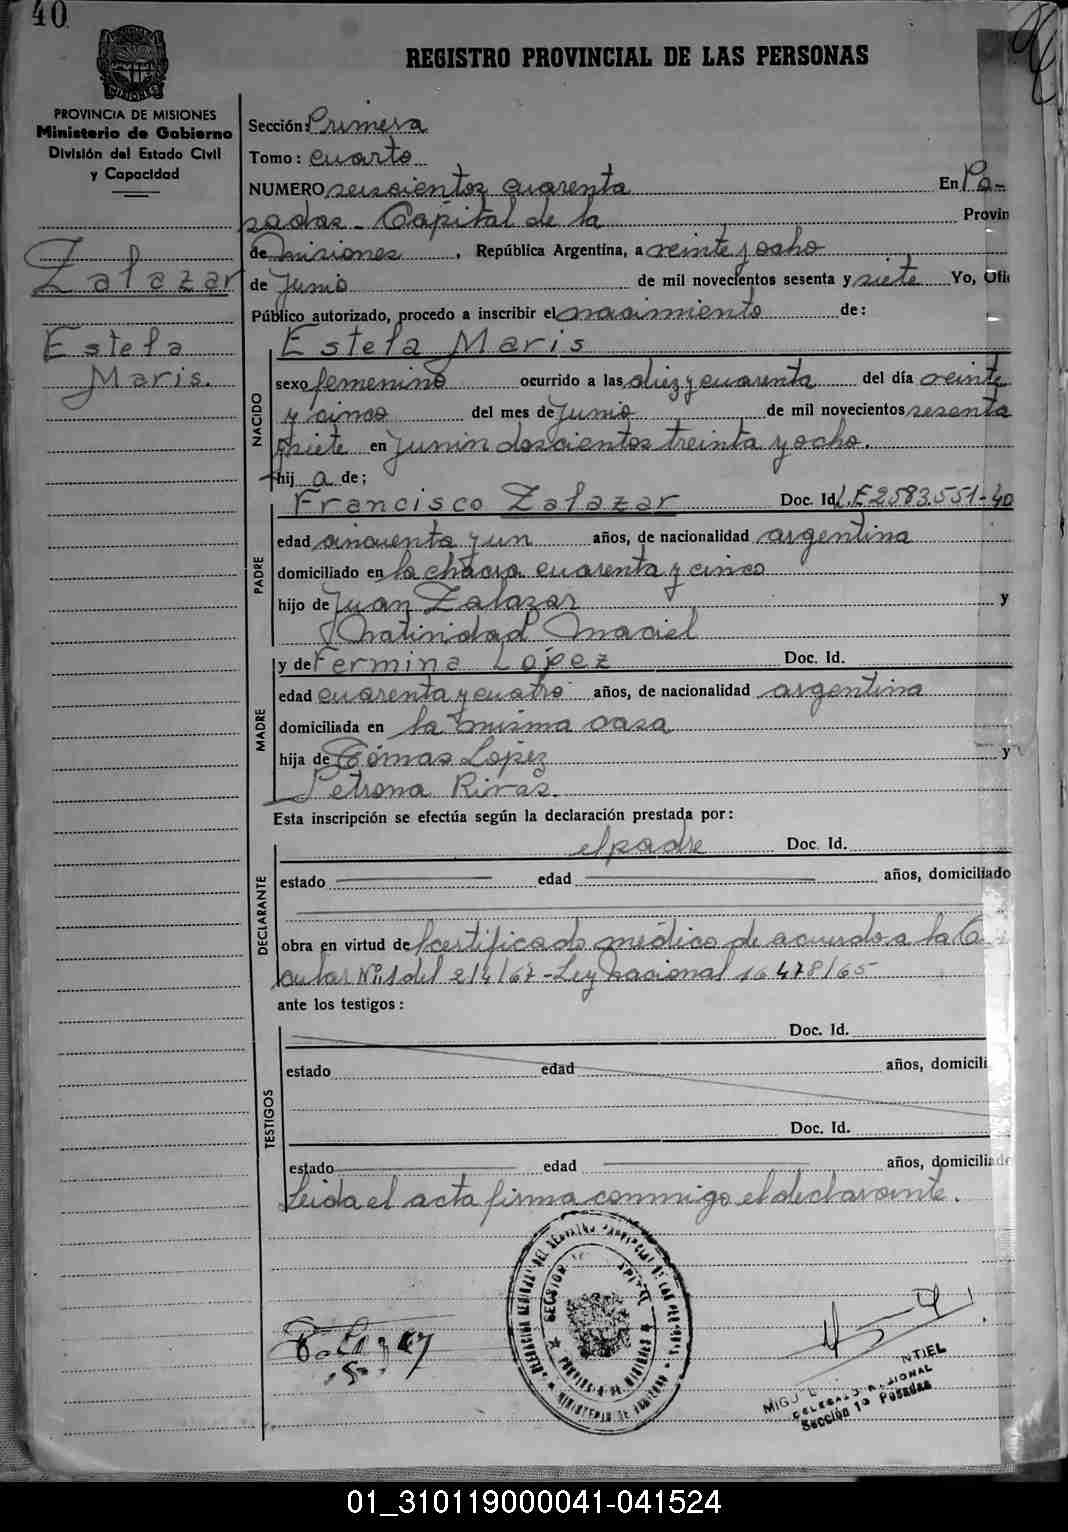 40
REGISTRO PROVINCIAL DE LAS PERSONAS
PROVINCIA DE MISIONES
Ministerio de Gobierno
División del Estado Civil
y Capacidad
Zalazar
Estela
Maris.
Sección: Primera
Tomo: cuarto
NUMERO seiscientos cuarenta En Po-
sadas - Capital de la Provin
de Misiones, República Argentina, a veinte y ocho
de Junio de mil novecientos sesenta y siete Yo, Ofic
Público autorizado, procedo a inscribir el nacimiento de:
NACIDO
Estela Maris
sexo femenino ocurrido a las diez y cuarenta del día veinte
y cinco del mes de Junio de mil novecientos sesenta
y siete en Junin doscientos treinta y ocho.
hij a de;
PADRE
Francisco Zalazar Doc. Id. L.E 2583.551-40
edad cincuenta y un años, de nacionalidad argentina
domiciliado en la chacra cuarenta y cinco
hijo de Juan Zalazar y
Natividad Maciel
MADRE
y de Fermina López Doc. Id.
edad cuarenta y cuatro años, de nacionalidad argentina
domiciliada en la misma casa
hija de Tómas Lopez y
Petrona Rivas.
Esta inscripción se efectúa según la declaración prestada por:
DECLARANTE
el padre Doc. Id.
estado edad años, domiciliado
obra en virtud de certificado médico de acuerdo a la Cir
cular Nº 1 del 2/4/67 - Ley Nacional 16478/65
ante los testigos:
TESTIGOS
Doc. Id.
estado edad años, domicili
Doc. Id.
estado edad años, domiciliado
Leida el acta firma conmigo el declarante.
SECCION
PROVINCIA DE MISIONES
MINISTERIO DE GOBIERNO
MIGU NTIEL
DELEGADO REGIONAL
Sección 1ª Posadas
01_310119000041-041524